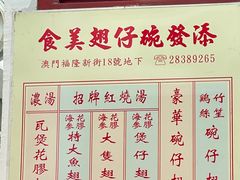 食美翅仔碗發添
澳門福隆新街18號地下 ☎28389265
濃湯
招牌紅燒湯
瓦煲花膠
海參花膠特大魚翅
海參花膠大隻翅
花膠煲仔翅
豪華碗仔翅
竹笙
鷄絲碗仔翅